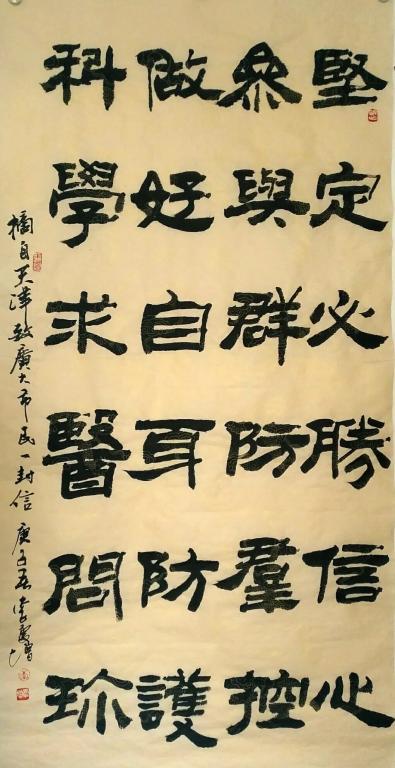 堅定必勝信心
參與群防羣控
做好自身防護
科學求醫問珍
摘自天津致廣大市民一封信 庚子春